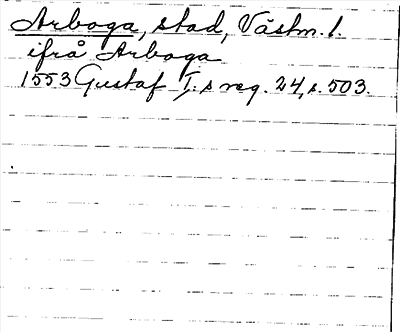 Arboga, stad, Västm. l.
ifrå Arboga
1553 Gustaf I:s reg. 24, s. 503.